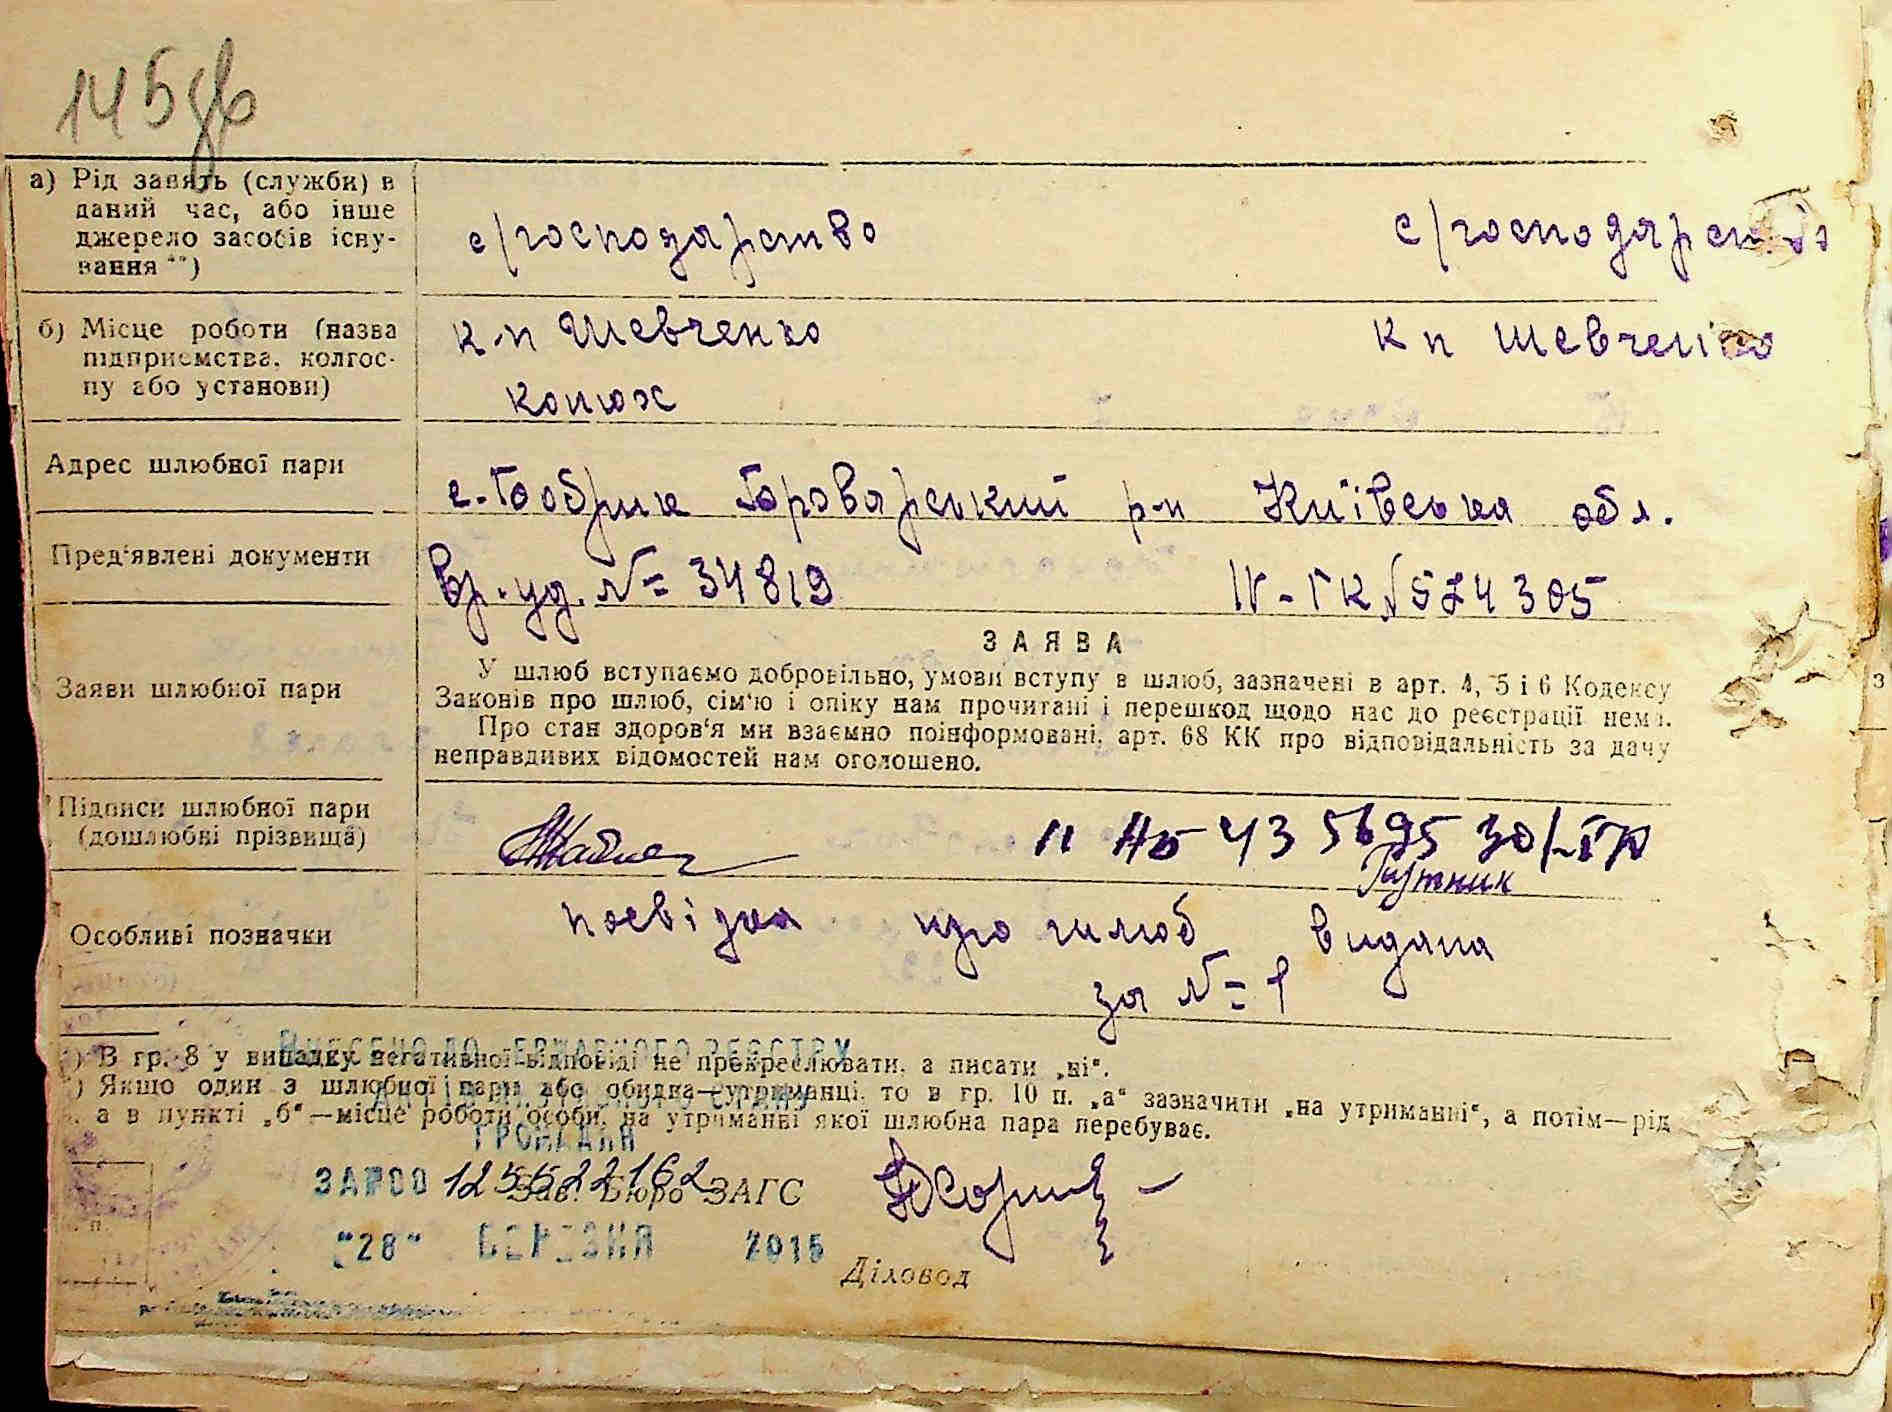 145зв
а) Рід занять (служби) в
даний час, або інше
джерело засобів існу-
вання **)
с/господарство с/господарство
б) Місце роботи (назва
підприємства, колгос-
пу або установи)
к-п Шевченко к п Шевченко
конюх
Адрес шлюбної пари
с. Бобрик Броварський р-н Київська обл.
Пред‘явлені документи
вр. уд. № 34819 IV-ГК № 524305
ЗАЯВА
Заяви шлюбної пари
У шлюб вступаємо добровільно, умови вступу в шлюб, зазначені в арт. 4, 5 і 6 Кодексу
Законів про шлюб, сім‘ю і опіку нам прочитані і перешкод щодо нас до реєстрації нема.
Про стан здоров‘я ми взаємно поінформовані, арт. 68 КК про відповідальність за дачу
неправдивих відомостей нам оголошено.
Підписи шлюбної пари
(дошлюбні прізвища)
Особливі позначки
посвідка про шлюб видана
за № 1
*) В гр. 8 у випадку негативної відповіді не прекреслювати, а писати „ні“.
*) Якщо один з шлюбної пари або обидва—утриманці, то в гр. 10 п. „а“ зазначити „на утриманні“, а потім—рід
а в пункті „б“—місце роботи особи, на утриманні якої шлюбна пара перебуває.
ВНЕСЕНО ДО ДЕРЖАВНОГО РЕЄСТРУ
АКТІВ ЦИВІЛЬНОГО СТАНУ
ГРОМАДЯН
ЗА №00 125522162
Зав. Бюро ЗАГС
"28" БЕРЕЗНЯ 2015
Діловод